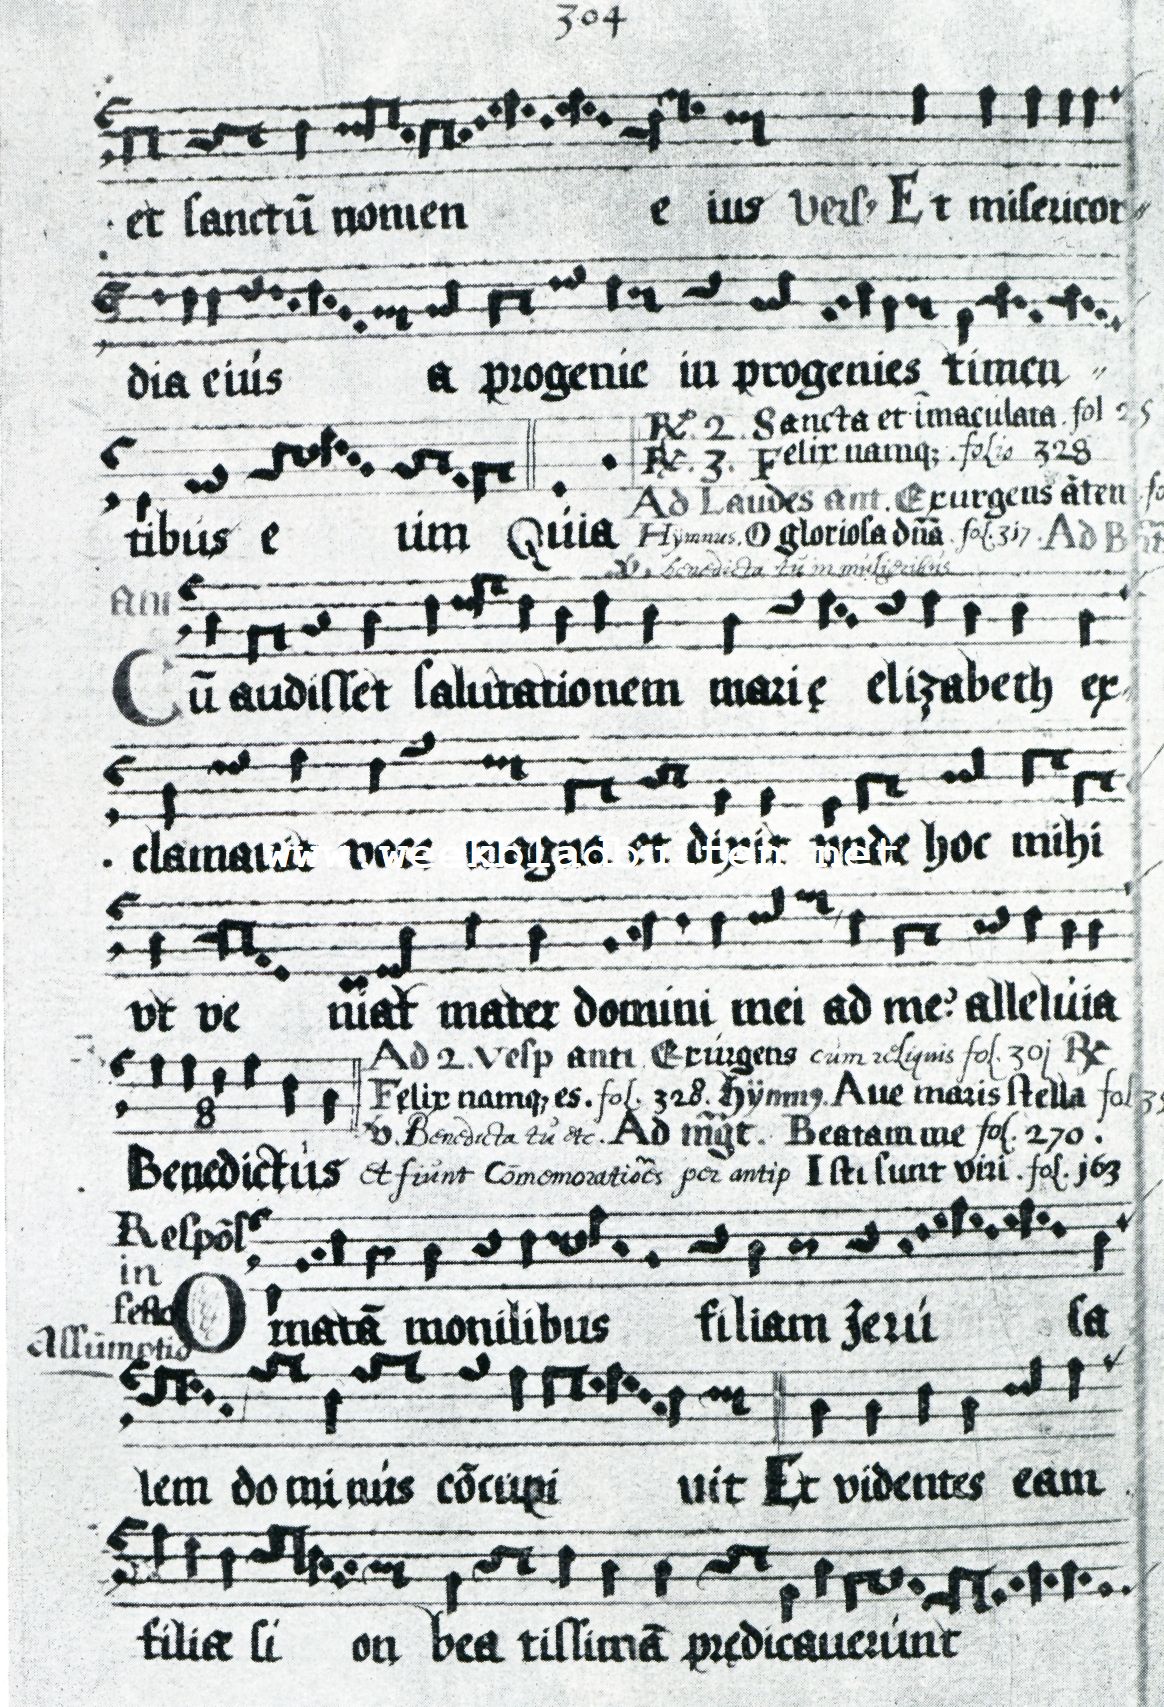 304
et sanctū nomen e ius Vers, Et misericor
dia eiús a progenie in progenies timen
R. 2. Sancta et īmaculata. fol 25
R. 3. Felix namq; . folio 328
Ad Laudes ant. Exurgens āteu
tibús e uim Qúia Hymnus. O gloriosa dn̄ā. fol. 317. Ad
v. benedicta tū in mulieribús
An
Cū audisset salutationem marię elizabeth ex
clamauit voce magna et dixit vnde hoc mihi
www.weekbladbuiten.net
vt ve niat mater domini mei ad me? alleluia
Ad 2. Vesp anti Exúrgens cùm reliquis fol. 30j R
Felix namq; es. fol. 328. Hÿmn9. Aue maris stella fol
8
v. Benedicta tū etc. Ad m̄gt. Beatam me fol. 270.
Benedictús et fiunt Cōmemoratiōēs per antip Isti sunt viri. fol. j63
Respōs
in
festo
Assūmptiō
Ornatā monilibus filiam Jerú sa
lem do mi nús cōcupi uit Et videntes eam
filiæ si on bea tissimā prędicauerúnt